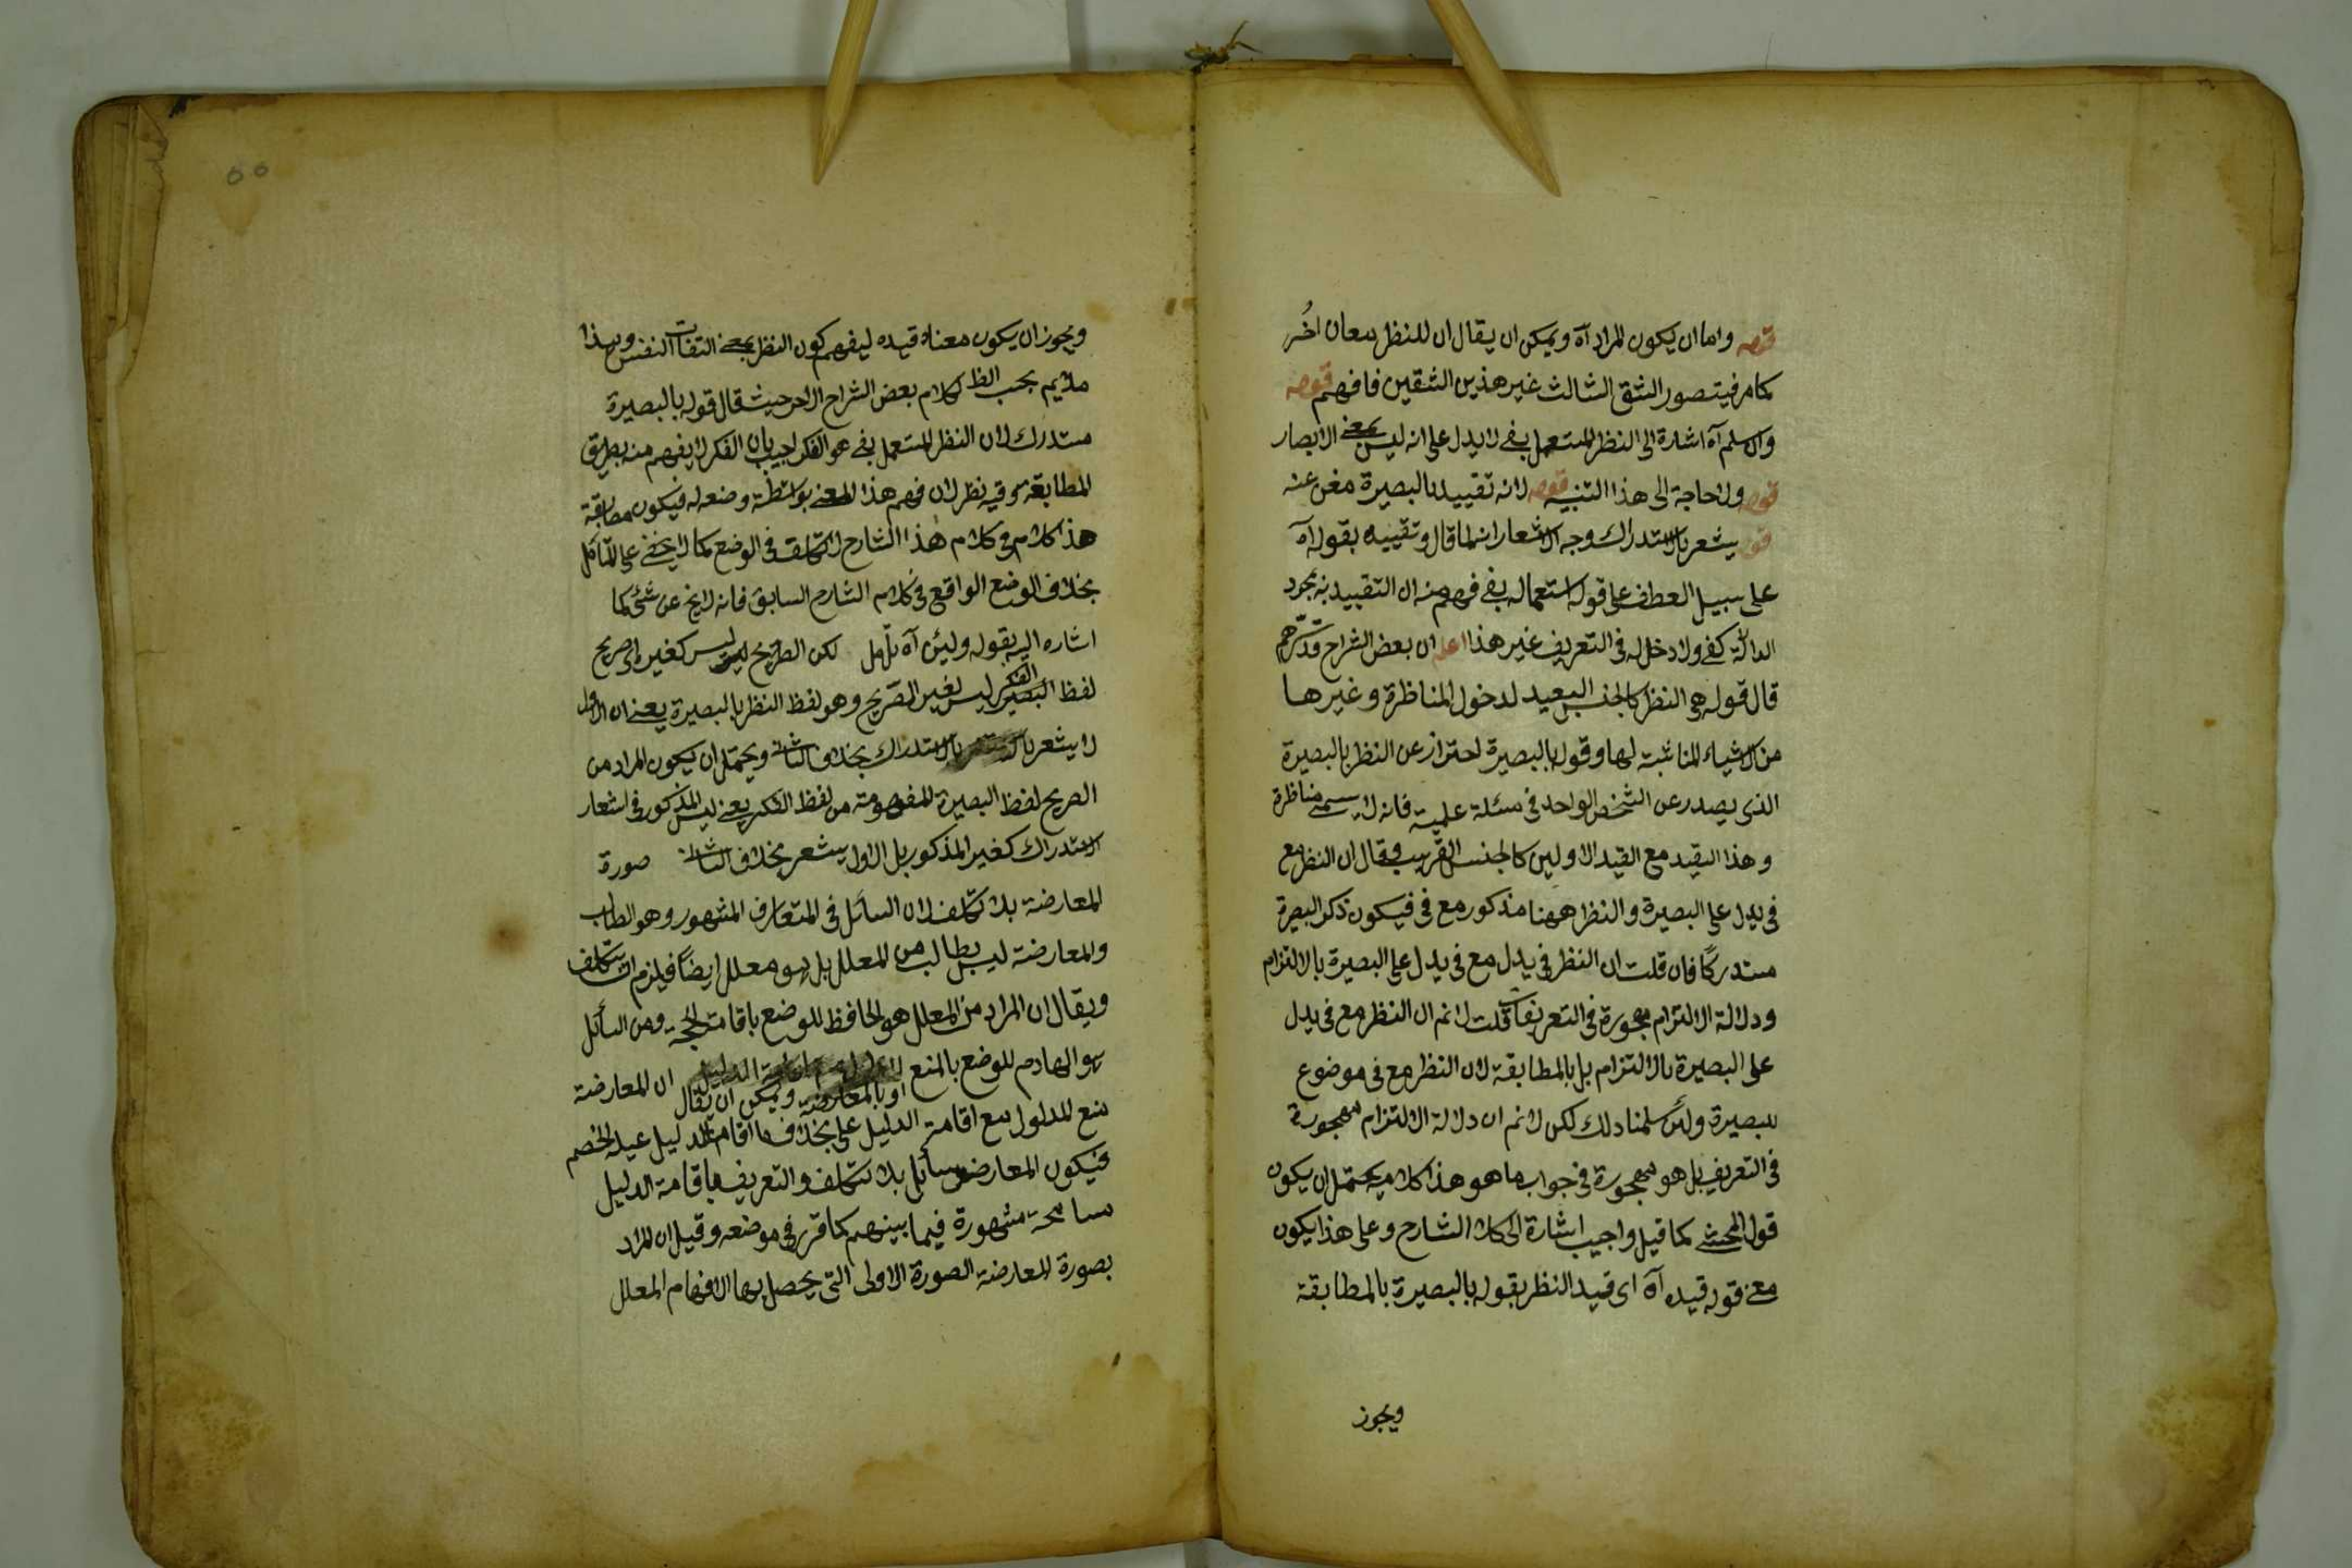 قوله واما ان يكون المراد آه ويمكن ان يقال ان للنظر معان اخُر
كما مر فيتصور الشق الثالث غير هذين الشقين فافهم قوله
والاسلم آه اشارة الى النظر المستعمل بفى لا يدل على انه ليس بمعنى الابصار
قوله ولا حاجة الى هذا التنبيه قوله لانه تقييد بالبصيرة مغن عنه
قوله يشعر بالاستدراك وجه الاشعار انه لما قال وتقييده بقوله آه
على سبيل العطف على قوله استعماله بفى فهم منه ان التقييد به بمجرد
الدالة كفى ولا دخل له فى التعريف غير هذا اعلم ان بعض الشراح
قال قوله هى النظر كالجنس البعيد لدخول المناظرة وغيرها
من الاشياء المناسبة لها وقوله بالبصيرة احتراز عن النظر بالبصيرة
الذى يصدر عن الشخص الواحد فى مسئلة علمية فانه لا يسمى مناظرة
وهذا القيد مع القيد الاولين كالجنس القريب وقال ان النظر مع
فى يدل على البصيرة والنظر ههنا مذكور مع فى فيكون ذكر البصيرة
مستدركًا فان قلت ان النظر فى يدل مع فى يدل على البصيرة بالالتزام
ودلالة الالتزام مهجورة فى التعريفات قلت لا نم ان النظر مع فى يدل
على البصيرة بالالتزام بل بالمطابقة لان النظر مع فى موضوع
للبصيرة ولئن سلمنا ذلك لكن لا نم ان دلالة الالتزام مهجورة
فى التعريف بل هو مهجورة فى جواب ما هو هذا كلامه يحتمل ان يكون
قول المحشى كما قيل واجيب اشارة الى كلام الشارح وعلى هذا يكون
معنى قوله قيده آه اى قيد النظر بقوله بالبصيرة بالمطابقة
ويجوز
ويجوز ان يكون معناه قيده ليفهم كون النظر بمعنى التفات النفس وهذا
ملايم بحسب الظ كلام بعض الشراح الاخر حيث قال قوله بالبصيرة
مستدرك لان النظر المستعمل بفى هو الفكر اجيب بان الفكر لا يفهم منه بطريق
المطابقة وفيه نظر لان فهم هذا المعنى بواسطة وضعه له فيكون مطابقة
هذا كلامه وفى كلام هذا الشارح لا تكلف فى الوضع كما لا يخفى على المتأمل
بخلاف الوضع الواقع فى كلام الشارح السابق فانه لا يخ عن شئ كما
اشاره اليه بقوله ولئن آه تأمل لكن الصريح ليس كغيره اى صريح
لفظ الفكر ليس لغير الصريح وهو لفظ النظر بالبصيرة يعنى ان الاول
لا يشعر بالاستدراك بخلاف الثانى ويحتمل ان يكون المراد من
الصريح لفظ البصيرة المفهومة من لفظ الفكر يعنى ليس المذكور فى اشعار
الاستدراك كغير المذكور بل الاول يشعر بخلاف الثانى صورة
المعارضة بلا تكلف لان السائل فى المتعارف المشهور وهو الطالب
والمعارضة ليس بطالب من المعلل بل هو معلل ايضًا فيلزم ان يتكلف
ويقال ان المراد من المعلل هو الحافظ للوضع باقامة الحجة ومن السائل
هو الهادم للوضع بالمنع او بالمعارضة ويمكن ان يقال ان المعارضة
منع المدلول مع اقامة الدليل على بخلاف ما اقام الدليل عليه الخصم
فيكون المعارض سائل بلا تكلف والتعريف باقامة الدليل
مسامحة مشهورة فيما بينهم كما قرر فى موضعه وقيل ان المراد
بصورة المعارضة الصورة الاولى التى يحصل بها الافهام المعلل